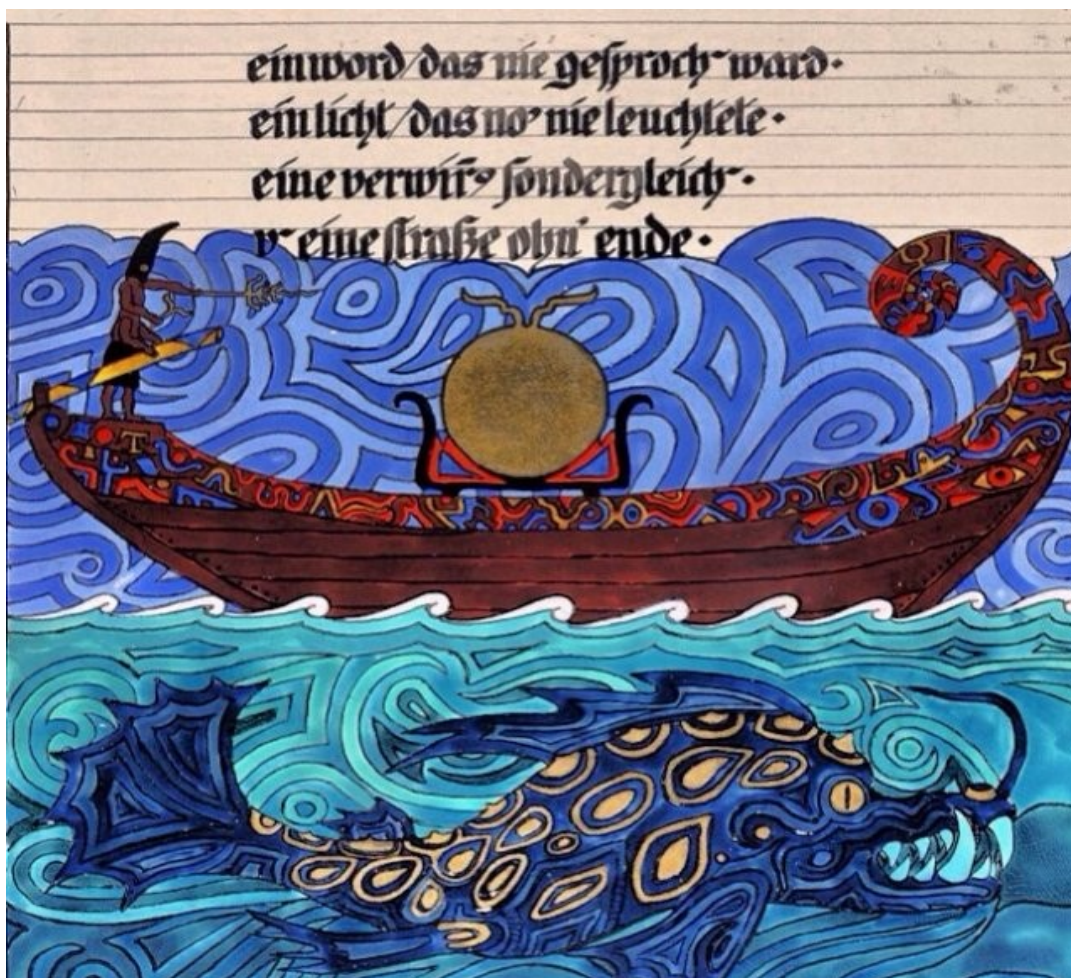 ein word/das nie gesproch' ward·
ein licht/das no' nie leuchtete·
eine verwir̄' sondergleich'·
v' eine straße ohn' ende·